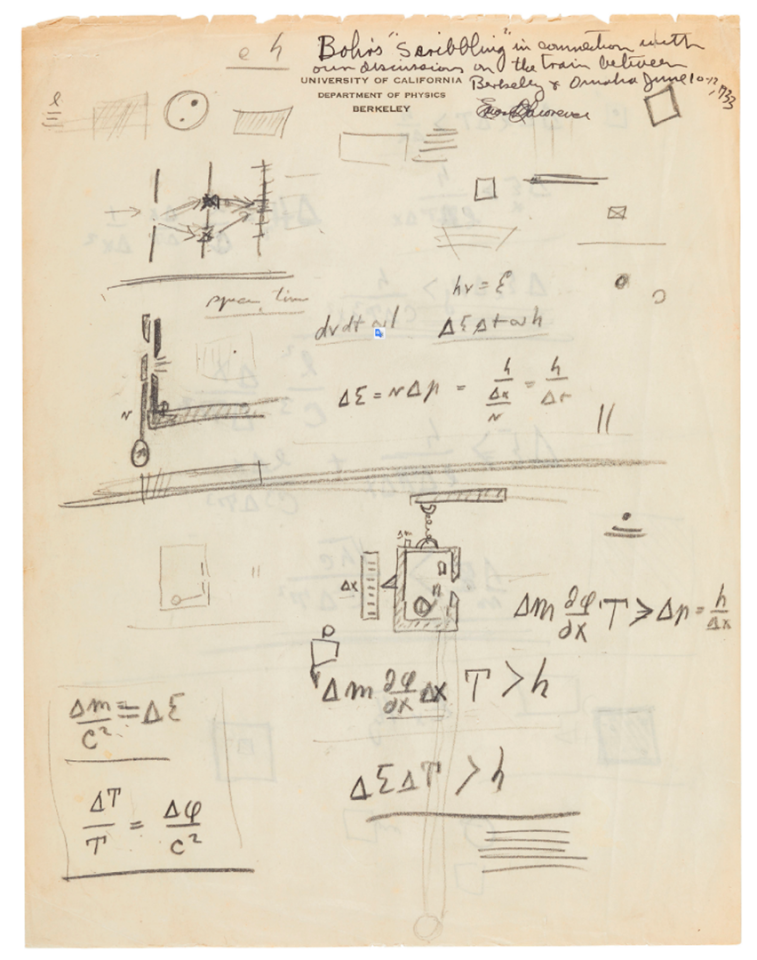 e h
Bohr's "Scribbling" in connection with
our discussions on the train between
Berkeley & Omaha June 10-12, 1933
UNIVERSITY OF CALIFORNIA
DEPARTMENT OF PHYSICS
BERKELEY
l
space, time
hν = Ɛ
dν dt ~ 1 ΔƐ Δt ~ h
ΔƐ = v Δp = h/(Δx/v) = h/Δt
v
Δx
Δm ∂φ/∂x T > Δp = h/Δx
Δm ∂φ/∂x Δx T > h
Δm/c² = ΔƐ
ΔƐ ΔT > h
ΔT/T = Δφ/c²